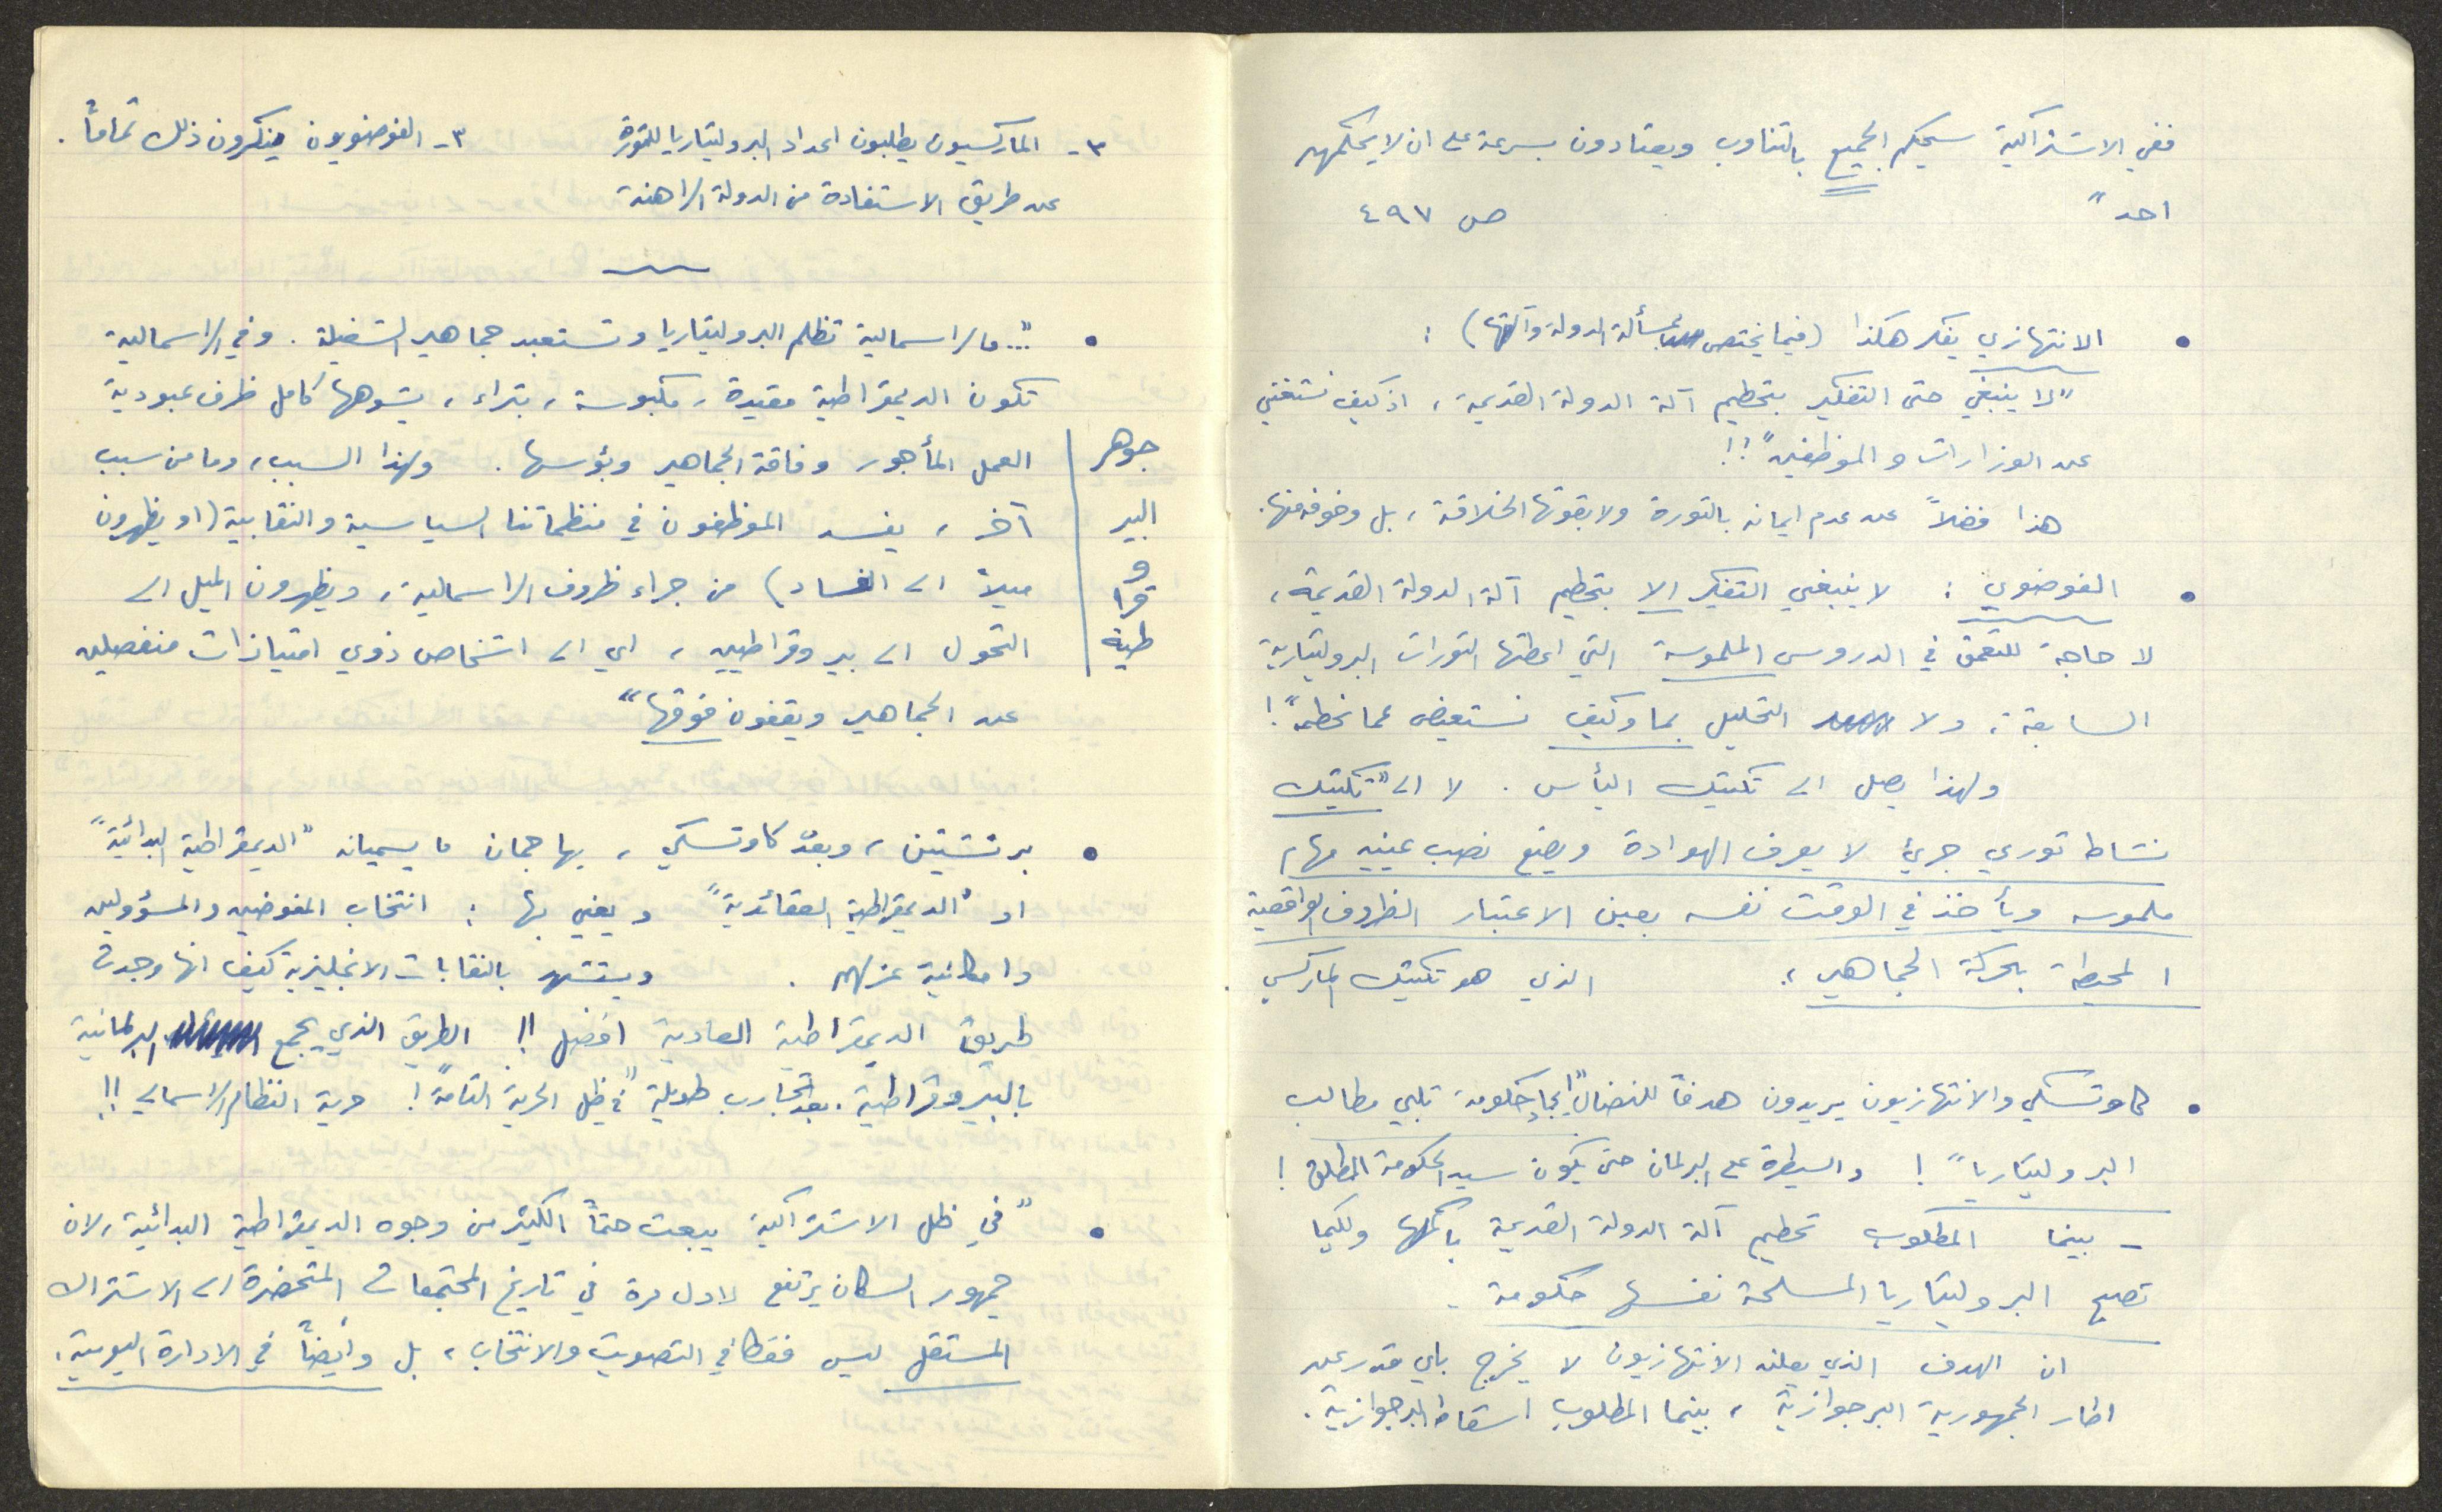 ٣- الماركسيون يطلبون اعداد البروليتاريا للثورة
عن طريق الاستفادة من الدولة الراهنة
٣- الفوضويون ينكرون ذلك تماماً.
• "... فالرأسمالية تظلم البروليتاريا وتستعبد جماهير الشغيلة. وفي الرأسمالية
تكون الديمقراطية مقيدة، مكبوسة، بتراء، يشوهها كامل ظرف عبودية
العمل المأجور وفاقة الجماهير وبؤسها. ولهذا السبب، وما من سبب
آخر، يفسد الموظفون في منظماتنا السياسية والنقابية (او يظهرون
ميلاً الى الفساد) من جراء ظروف الراسمالية، ويظهرون الميل الى
التحول الى بيروقراطيين، اي الى اشخاص ذوي امتيازات منفصلين
عن الجماهير ويقفون فوقها"
جوهر
البير
و
قرا
طية
• برنشتين، وبعد كاوتسكي، يهاجمان ما يسميانه "الديمقراطية البدائية"
او "الديمقراطية العقائدية" ويعني بها: انتخاب المفوضين والمسؤولين
وامكانية عزلهم. ويستشهد بالنقابات الانجليزية كيف انها وجدت
طريق الديمقراطية العادية افضل!! الطريق الذي يجمع البرلمانية
بالبيروقراطية. بعد تجارب طويلة "في ظل الحرية التامة"! حرية النظام الراسمالي!!
• "في ظل الاشتراكية يبعث حتماً الكثير من وجوه الديمقراطية البدائية، لان
جمهور السكان يرتفع لاول مرة في تاريخ المجتمعات المتحضرة الى الاشتراك
المستقل ليس فقط في التصويت والانتخاب، بل وأيضاً في الادارة اليومية.
ففي الاشتراكية سيحكم الجميع بالتناوب ويعتادون بسرعة على ان لا يحكمهم
احد" ص ٤٩٧
• الانتهازي يفكر هكذا (فيما يختص بمسألة الدولة وآلتها):
"لا ينبغي حتى التفكير بتحطيم آلة الدولة القديمة، اذ كيف نستغني
عن الوزارات والموظفين"!!
هذا فضلاً عن عدم ايمانه بالثورة ولا بقوتها الخلاقة، بل وخوفه منها.
• الفوضوي: لا ينبغي التفكير الا بتحطيم آلة الدولة القديمة،
لا حاجة للتعمق في الدروس الملموسة التي اعطتها الثورات البروليتارية
السابقة، ولا التحليل بما وكيف نستعيض عما نحطمه"!
ولهذا يصل الى تكتيك اليأس. لا الى "تكتيك
نشاط ثوري جريئ لا يعرف الهوادة ويضع نصب عينيه مهام
ملموسه ويأخذ في الوقت نفسه بعين الاعتبار الظروف الواقعية
المحيطة بحركة الجماهير"، الذي هو تكتيك الماركسي.
• كاوتسكي والانتهازيون يريدون هدفاً للنضال "ايجاد حكومة تلبي مطالب
البروليتاريا"! والسيطرة على البرلمان حتى يكون سيد الحكومة المطلق!
- بينما المطلوب تحطيم آلة الدولة القديمة باكملها ولكيما
تصبح البروليتاريا المسلحة نفسها حكومة.
ان الهدف الذي يعلنه الانتهازيون لا يخرج باي قدر عن
اطار الجمهورية البرجوازية، بينما المطلوب اسقاط البرجوازية.